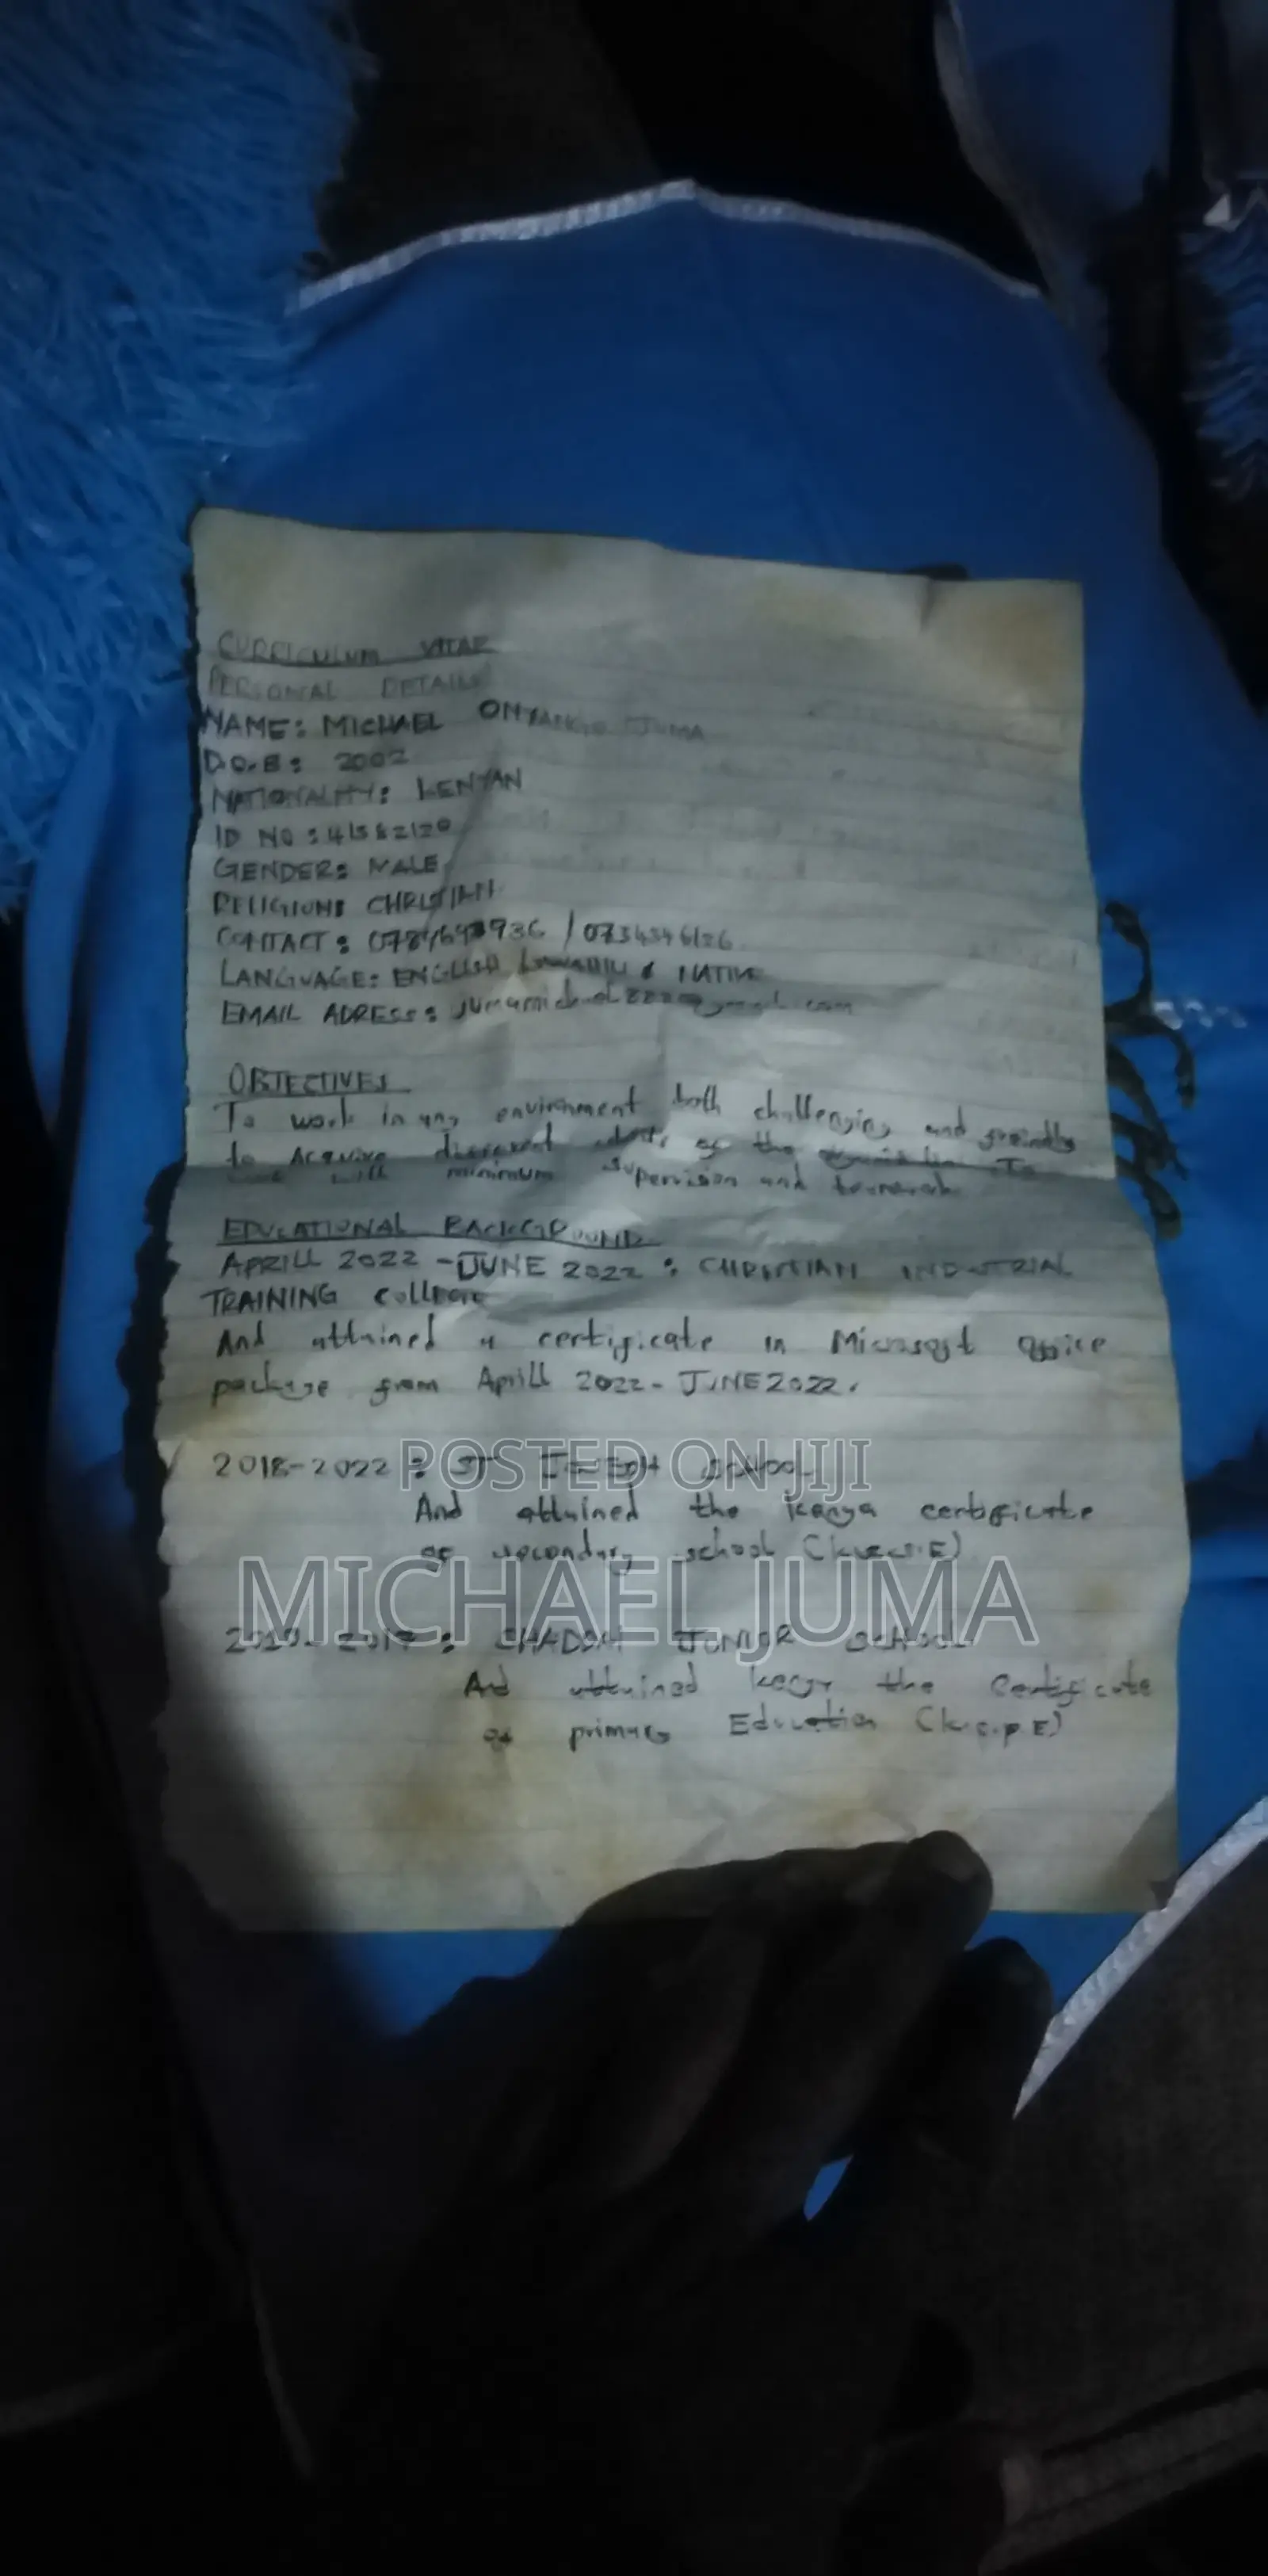 CURRICULUM VITAE
PERSONAL DETAILS
NAME: MICHAEL ONYANGO JUMA
D.O.B: 2002
NATIONALITY: KENYAN
ID NO:
GENDER: MALE
RELIGION: CHRISTIAN
CONTACT:
LANGUAGE: ENGLISH & NATIVE
EMAIL ADRESS:
OBJECTIVES
To work in any environment both challenging and friendly
to Acquire of the To
minimum supervision and
EDUCATIONAL BACKGROUND
APRILL 2022 - JUNE 2022 : CHRISTIAN INDUSTRIAL
TRAINING COLLEGE
And attained a certificate in Microsoft Office
package from Aprill 2022 - JUNE 2022.
2018-2022 : ST JOSEPH SCHOOL
POSTED ON JIJI
And attained the kenya certificate
of secondary school (k.c.s.E)
MICHAEL JUMA
2017 : JUNIOR SCHOOL
And attained the Certificate
of primary Education (k.c.p.E)